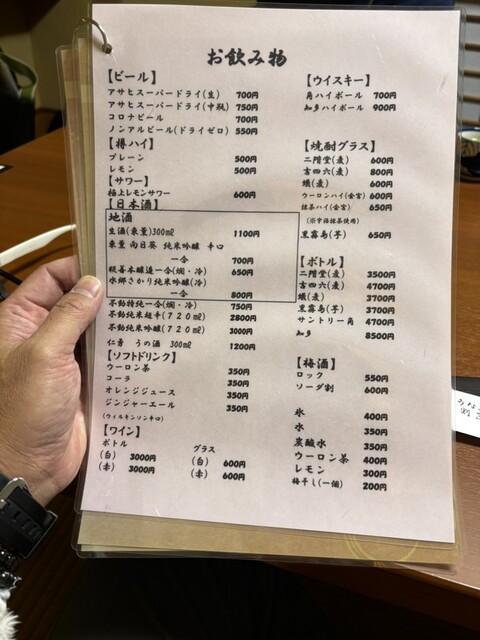 お飲み物
【ビール】
アサヒスーパードライ(生) 700円
アサヒスーパードライ(中瓶) 750円
コロナビール 700円
ノンアルビール(ドライゼロ) 550円
【樽ハイ】
プレーン 500円
レモン 500円
【サワー】
極上レモンサワー 600円
【日本酒】
地酒
生酒(東薫)300㎖ 1100円
東薫 向日葵 純米吟醸 辛口
一合 700円
糀善本醸造一合(燗・冷) 650円
水郷さかり純米吟醸(冷)
一合 800円
不動特純一合(燗・冷) 750円
不動純米超辛(720㎖) 2800円
不動純米吟醸(720㎖) 3000円
仁勇 うの酒 300㎖ 1200円
【ソフトドリンク】
ウーロン茶 350円
コーラ 350円
オレンジジュース 350円
ジンジャーエール 350円
(ウィルキンソン辛口)
【ワイン】
ボトル
(白) 3000円
(赤) 3000円
グラス
(白) 600円
(赤) 600円
【ウイスキー】
角ハイボール 700円
知多ハイボール 900円
【焼酎グラス】
二階堂(麦) 600円
吉四六(麦) 800円
㐂(麦) 600円
ウーロンハイ(金宮) 600円
抹茶ハイ(金宮) 650円
(※宇治抹茶使用)
黒霧島(芋) 650円
【ボトル】
二階堂(麦) 3500円
吉四六(麦) 4700円
(麦) 3700円
黒霧島(芋) 3700円
サントリー角 4700円
知多 8500円
【梅酒】
ロック 550円
ソーダ割 600円
氷 400円
水 350円
炭酸水 350円
ウーロン茶 400円
レモン 300円
梅干し(一個) 200円